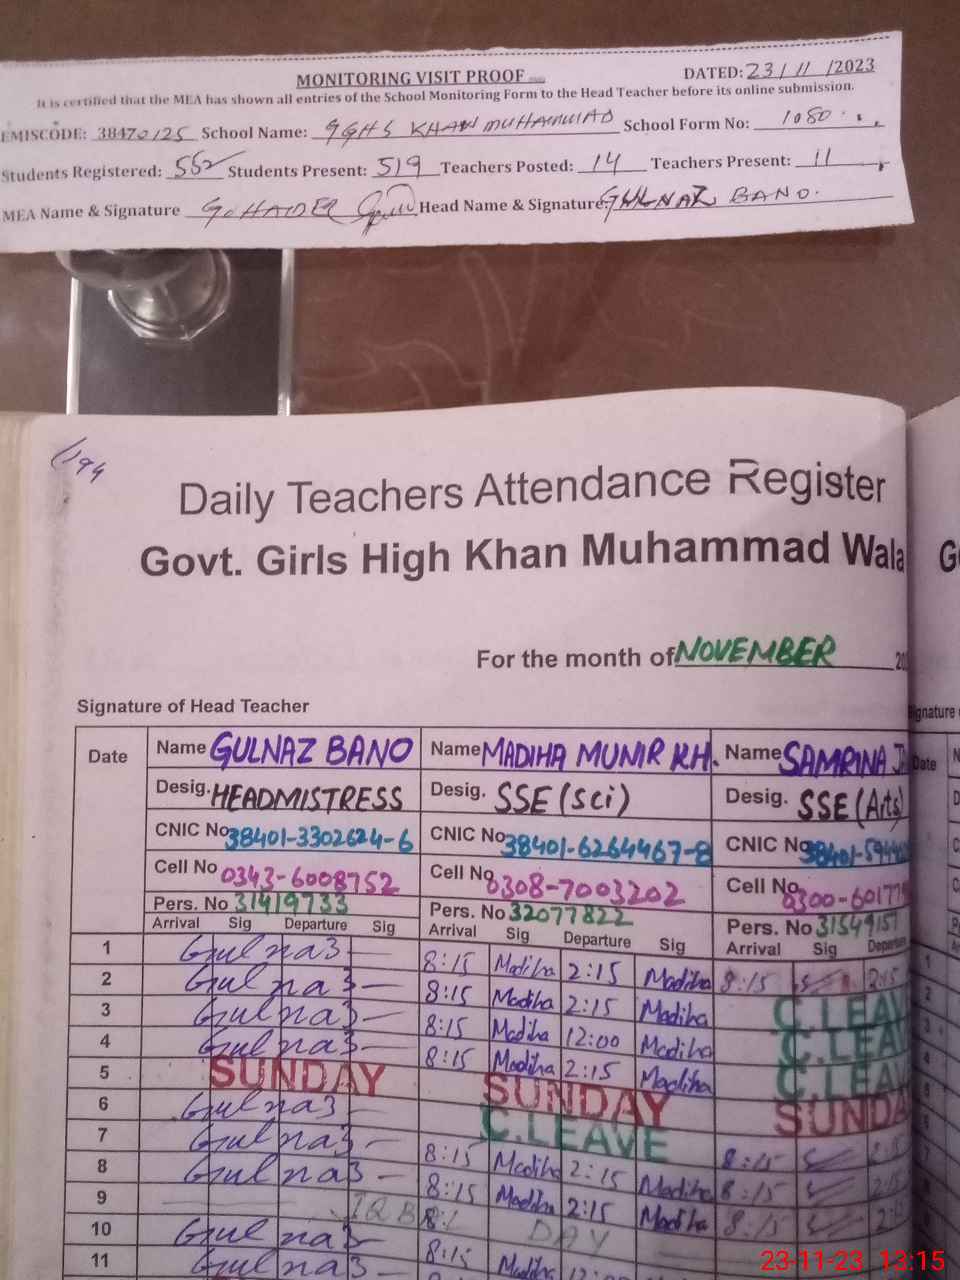 MONITORING VISIT PROOF
DATED: 23/11/2023
It is certified that the MEA has shown all entries of the School Monitoring Form to the Head Teacher before its online submission.
EMISCODE: 38470125 School Name: GGHS KHAN MUHAMMAD School Form No: 1080
Students Registered: 552 Students Present: 519 Teachers Posted: 14 Teachers Present: 11
MEA Name & Signature G. HAIDER Head Name & Signature: GULNAZ BANO.
194
Daily Teachers Attendance Register
Govt. Girls High Khan Muhammad Wala
For the month of NOVEMBER 20
Signature of Head Teacher
Date Name GULNAZ BANO Name MADIHA MUNIR KH. Name SAMRINA
Desig. HEADMISTRESS Desig. SSE (Sci) Desig. SSE (Arts)
CNIC No 38401-3302624-6 CNIC No 38401-6264467-8 CNIC No 38401-
Cell No 0343-6008752 Cell No 0308-7003202 Cell No 0300-
Pers. No 31419733 Pers. No 32077822 Pers. No 3154915
Arrival Sig Departure Sig Arrival Sig Departure Sig Arrival Sig Departure
1 Gulnaz 8:15 Madiha 2:15 Madiha 8:15 2:15
2 Gulnaz 8:15 Madiha 2:15 Madiha C.LEAVE
3 Gulnaz 8:15 Madiha 12:00 Madiha C.LEAVE
4 Gulnaz 8:15 Madiha 2:15 Madiha C.LEAVE
5 SUNDAY SUNDAY SUNDA
6 Gulnaz C.LEAVE 8:15
7 Gulnaz 8:15 Madiha 2:15 Madiha 8:15
8 Gulnaz 8:15 Madiha 2:15 Madiha 8:15
9 IQBAL DAY
10 Gulnaz 8:15
11
23-11-23 13:15